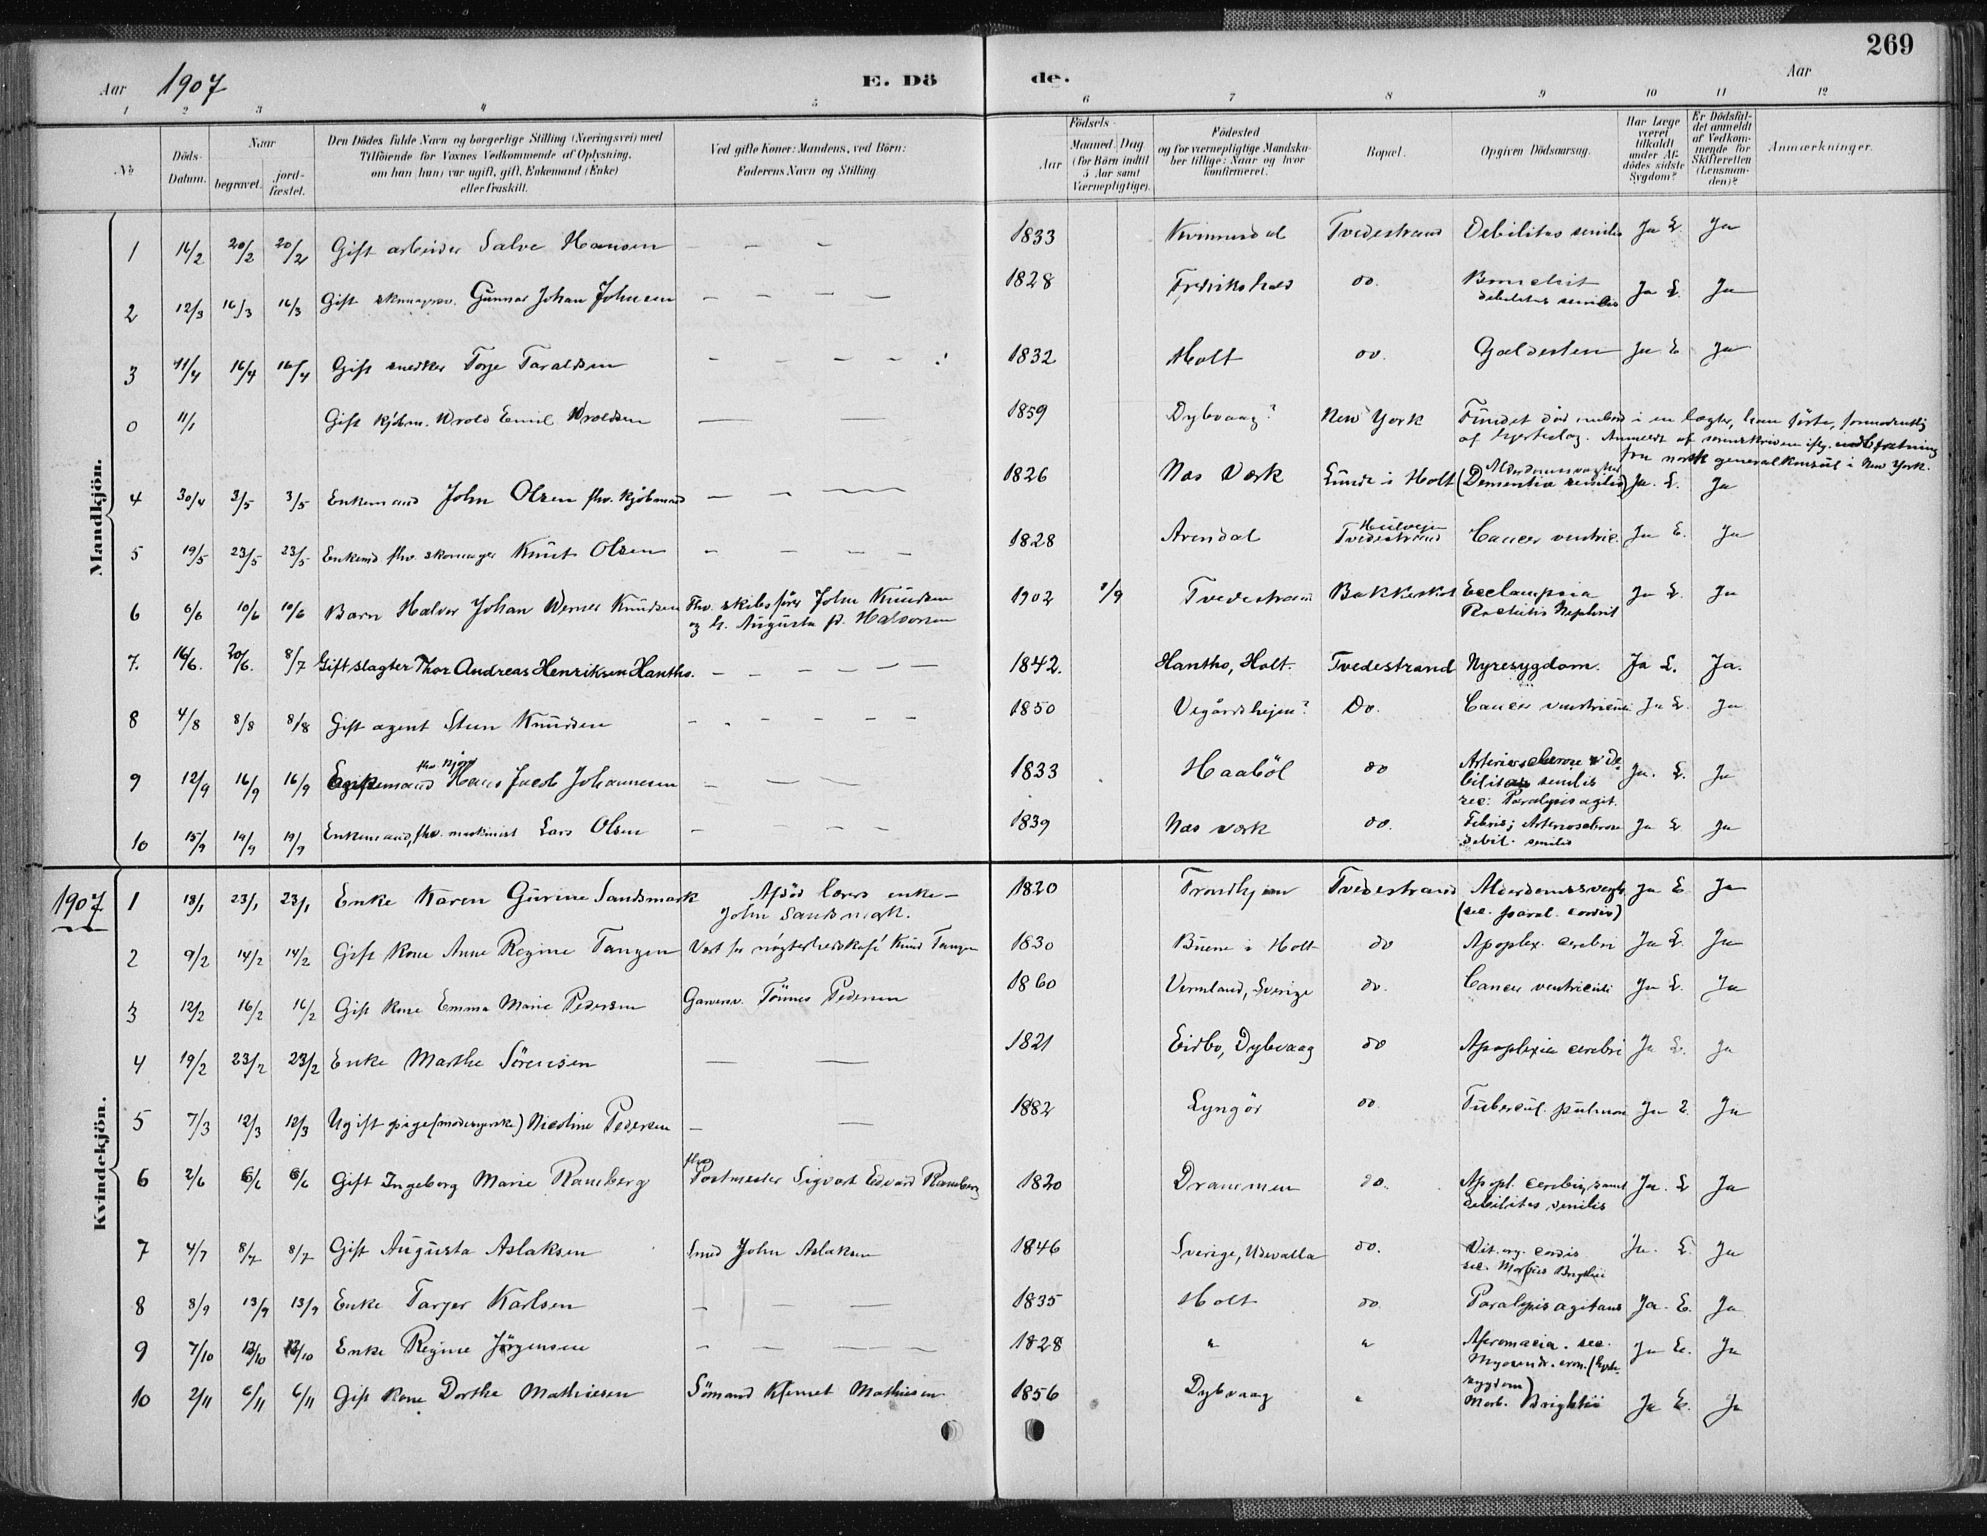 269
Aar 1907 E. Dö de. Aar
1 2 3 4 5 6 7 8 9 10 11 12
№
Döds-Datum.
Naar
begravet.
jord-fæstet.
Den Dödes fulde Navn og borgerlige Stilling (Næringsvei) med
Tilföiende for Voxnes Vedkommende af Oplysning,
om han (hun) var ugift, gift, Enkemand (Enke)
eller fraskilt.
Ved gifte Koner: Mandens, ved Börn:
Faderens Navn og Stilling
Födsels-
Aar
Maaned. Dag
(for Börn indtil
5 Aar samt
Værnepligtige).
Födested
og for værnepligtige Mandska-
ber tillige: Naar og hvor
konfirmeret.
Bopæl.
Opgiven Dödsaarsag.
Har Læge
været
tilkaldt
under Af-
dödes sidste
Sygdom?
Er Dödsfal-
det anmeldt
af Vedkom-
mende for
Skifteretten
(Lensman-
den)?
Anmærkninger.
Mandkjön.
1 16/2 20/2 20/2 Gift arbeider Salve Hansen — — — 1833 Tvedestrand Debilitas senilis Ja L. Ja
2 12/3 16/3 16/3 Gift Gunnar Johan Johnsen — — — — 1828 Fredrikshald do. Bronchit
debilitas senilis Ja L. Ja
3 11/4 16/4 16/4 Gift snedker Torje Taraldsen — — — — 1832 Holt do. Galdesten Ja L Ja
0 11/1 Gift kjöbm. Wrold Emil Wroldsen — — 1859 Dybvaag? New York Fundet död ombord i en lægter, han förte, formodentlig
af hjerteslag. Anmeldt af sorenskriveren iflg. indberetning
fra norsk generalkonsul i New York.
4 30/4 3/5 3/5 Enkemand John Olsen fhv. kjöbmand — — — 1826 Næs Værk Lunde i Holt Alderdomssvaghed
(Dementia senilis) Ja. L. Ja
5 19/5 23/5 23/5 Enkemd fhv. skomager Knut Olsen — — — — 1828 Arendal
Tvedestrand Cancer ventric. Ja L. Ja
6 6/6 10/6 10/6 Barn Halvor Johan Werner Knudsen Fhv. skibsförer John Knudsen
og h. Augusta f. Halvorsen 1902 1/9 Tvedestrand Bakkeskot Ecclampsia
Rachitis Nephrit Ja L. Ja
7. 16/6. 20/6. 8/7 Gift slagter Thor Andreas Henriksen Hantho. — — — — — 1842. Hantho, Holt. Tvedestrand Nyresygdom. Ja L. Ja.
8 4/8 8/8 8/8 Gift agent Steen Knudsen — — — — — 1850 Vegårdshejen? Do. Cancer ventriculi Ja L. Ja
9 12/9 16/9 16/9 Enkemand Hans Jacob Johannesen — — 1833 Haaböl do Arteriosclerose & de-
bilitas senilis
sec: Paralysis agit. Ja. L. Ja
10 15/9 19/9 19/9 Enkemand, fhv. maskinist Lars Olsen — — — — 1839 Næs værk do. Febris; Arteriosclerose
debil. senilis Ja L Ja
1907
Kvindekjön.
1 18/1 23/1 23/1 Enke Karen Gurine Sandsmark Afdöd lærers enke —
John Sandsmark. 1820 Trondhjem Tvedestrand Alderdomssvagh.
(sec. paral. cordis) Ja L. Ja
2 9/2 14/2 14/2 Gift kone Anne Regine Tangen Vært for nögterhedskafé Knud Tangen 1830 Buene i Holt do Apoplex. cerebri Ja L. Ja
3 12/2 16/2 16/2 Gift kone Emma Marie Pedersen Garversv. Tönnes Pedersen 1860 Vermland, Sverige do. Cancer ventriculi Ja L. Ja
4 19/2 23/2 23/2 Enke Marthe Sörensen — — 1821 Eidbo, Dybvaag do Apoplexia cerebri Ja L. Ja
5 7/3 12/3 12/3 Ugift pige (modesyerske) Nicoline Pedersen — — 1882 Lyngör do. Tubercul. pulmon Ja L Ja
6 2/6 6/6 6/6 Gift Ingeborg Marie Ramberg fhv.
Postmester Sigvart Edvard Ramberg 1820 Drammen do. Apopl. cerebri, samt
debilitas senilis Ja. L Ja
7 4/7 8/7 8/7 Gift Augusta Aslaksen Smed John Aslaksen 1846 Sverige, Udevalla do. Vit. org. cordis
sec. Morbus Brightii Ja. L. Ja
8 8/9 13/9 13/9 Enke Targer Karlsen — — — 1835 Holt do Paralysis agitans Ja. L. Ja
9 7/10 12/10 12/10 Enke Regine Jörgensen — — — — 1828 " " sec.
Ja L. Ja
10 2/11 6/11 6/11 Gift kone Dorthe Mathiesen Sömand Klemet Mathiesen 1856 Dybvaag " sygdom)
Morb. Brightii Ja L. Ja